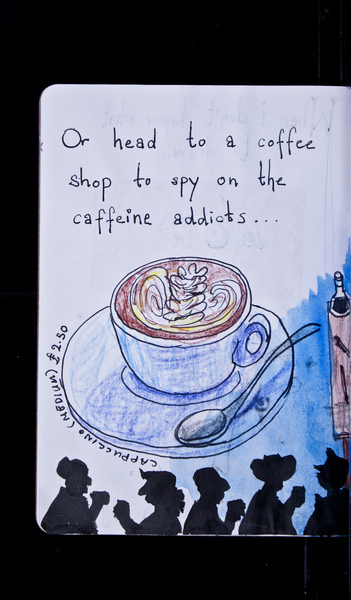 Or head to a coffee
shop to spy on the
caffeine addicts...
CAPPUCCINO (MEDIUM) £2.50